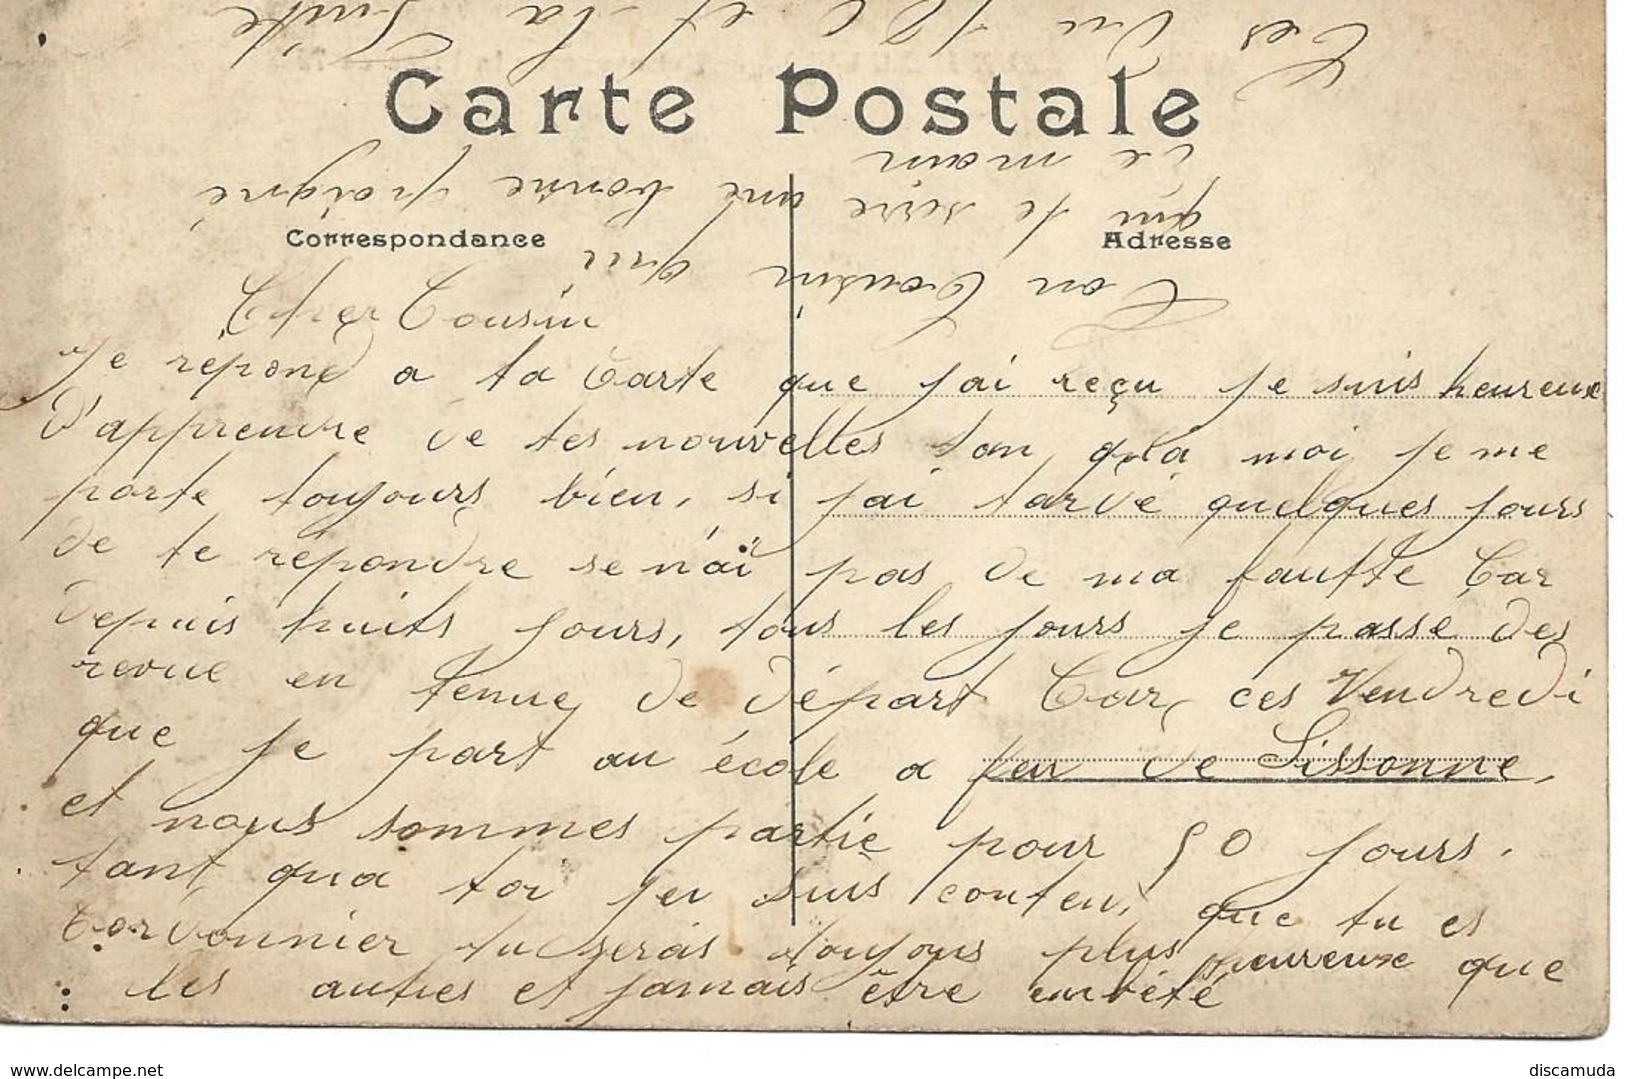 Carte Postale
Correspondance
Adresse
Cher Cousin
Je répond a ta Carte que j'ai reçu je suis heureuse
d'apprendre de tes nouvelles tan qu'a moi je me
porte toujours bien, si j'ai tardé quelques jours
de te répondre se n'ai pas de ma fautte Car
depuis huits jours, tous les jours je passe des
revue en tenue de départ Car ces Vendredi
que je part au école a feu de Sissonne,
et nous sommes partie pour 50 jours.
tant qua toi jeu suis conten, que tu es
Cordonnier tu serais toujours plus heureuse que
les autres et jamais être embété
tes du 12 et la Suite
Ton Cousin qui
qui te serre une bonne poigné
de main
www.delcampe.net
discamuda